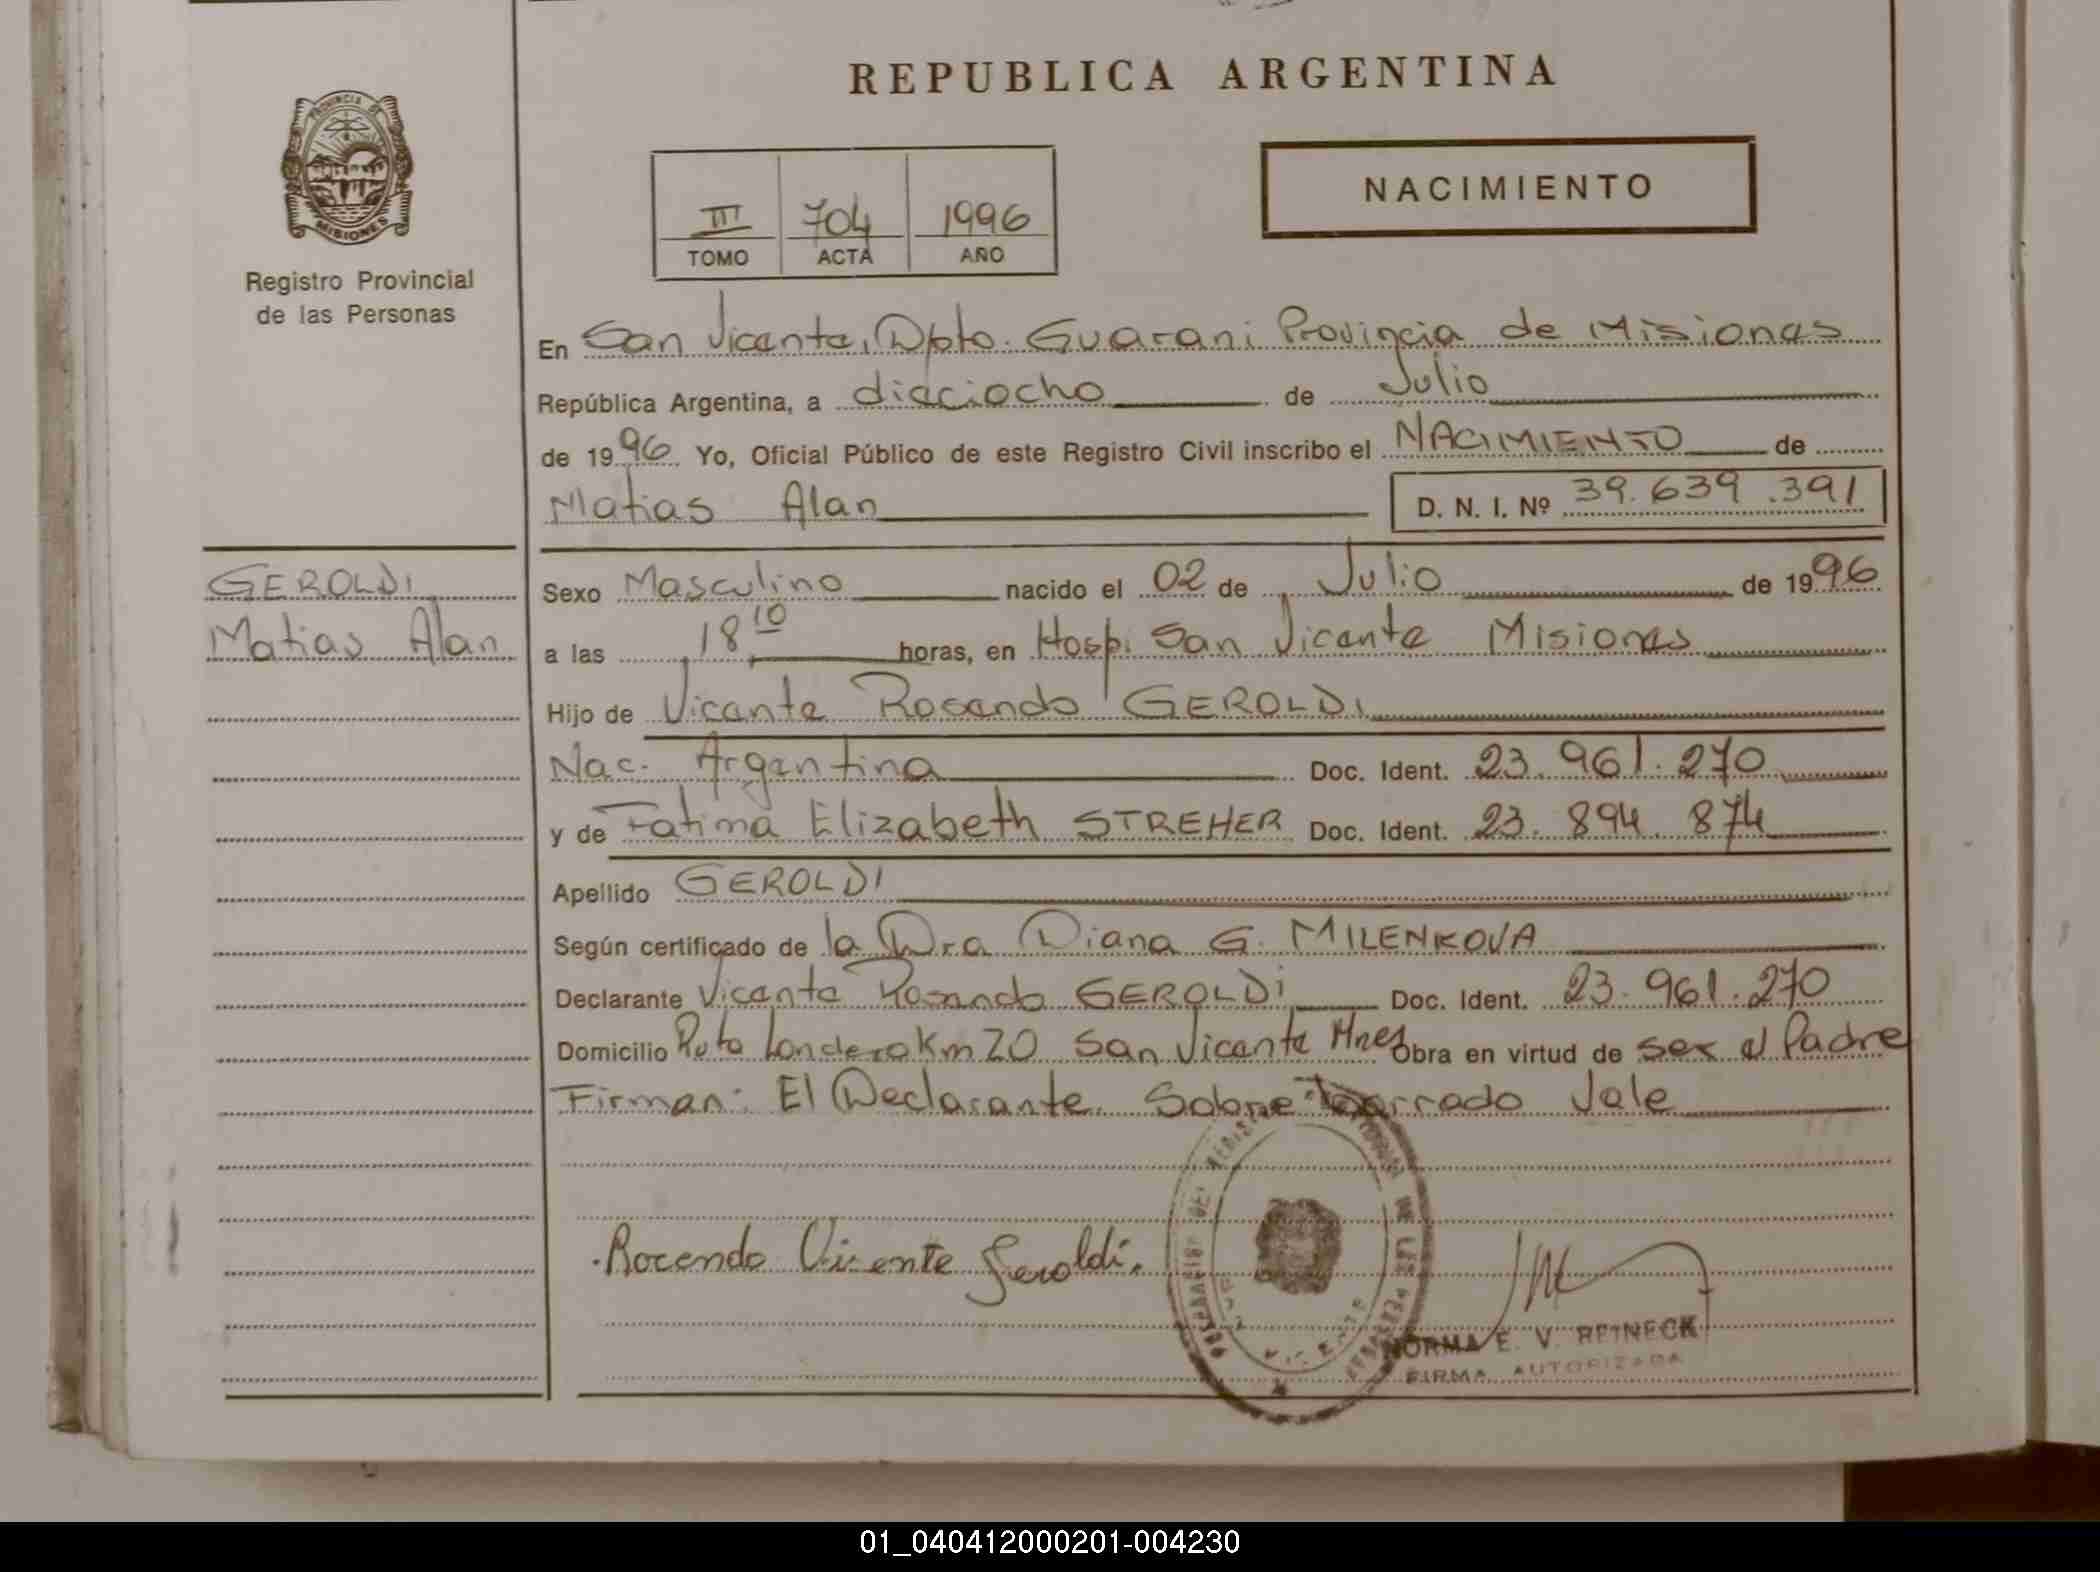 REPUBLICA ARGENTINA
PROVINCIA DE
MISIONES
Registro Provincial
de las Personas
III 704 1996
TOMO ACTA AÑO
NACIMIENTO
En San Vicente, Dpto. Guarani Provincia de Misiones
República Argentina, a dieciocho de Julio
de 1996 Yo, Oficial Público de este Registro Civil inscribo el NACIMIENTO de
Matias Alan D. N. I. Nº 39.639.391
GEROLDI
Matias Alan
Sexo Masculino nacido el 02 de Julio de 1996
a las 18 10 horas, en Hosp. San Vicente Misiones
Hijo de Vicente Rosendo GEROLDI
Nac. Argentina Doc. Ident. 23.961.270
y de Fatima Elizabeth STREHER Doc. Ident. 23.894.874
Apellido GEROLDI
Según certificado de la Dra Diana G. MILENKOVA
Declarante Vicente Rosendo GEROLDI Doc. Ident. 23.961.270
Domicilio Ruta Londero Km 20 San Vicente Mnes Obra en virtud de ser el Padre
Firman: El Declarante. Sobre borrado Vale
Rocendo Vicente Geroldi.
DE LAS PERSONAS
NORMA E. V. REINECK
FIRMA AUTORIZADA
01_040412000201-004230